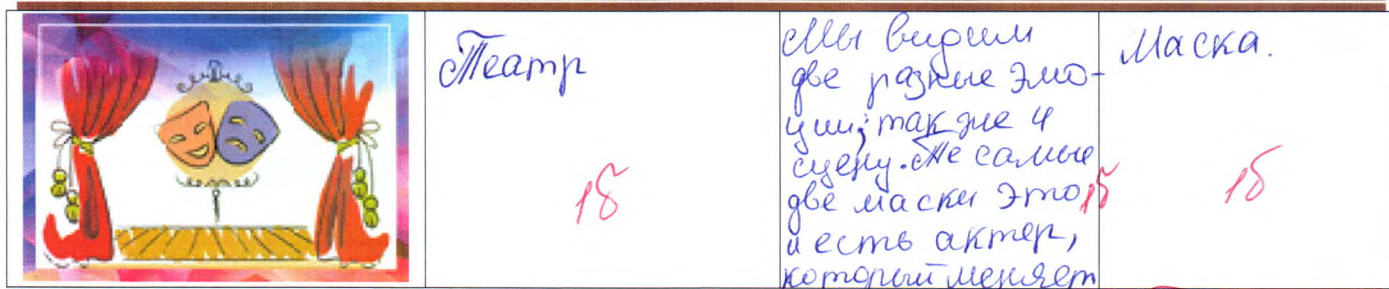 Театр
1б
Мы видим
две разные эмо-
ции, также и
сцену. Те самые
две маски это
и есть актер,
который меняет
1б
Маска.
1б